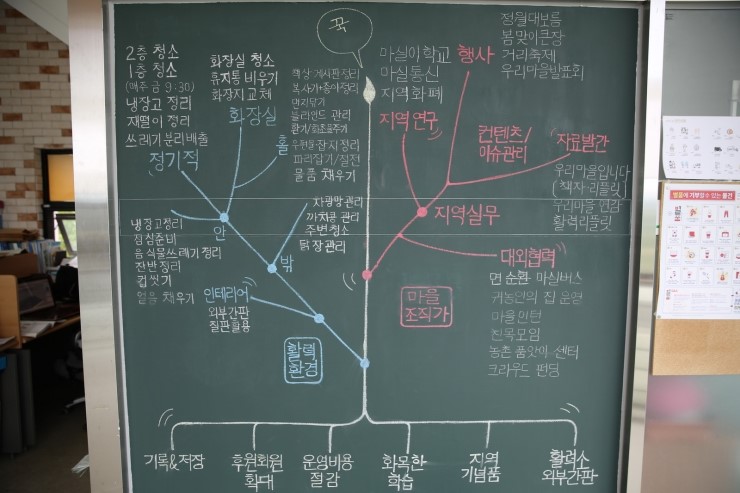 꾹
2층 청소
1층 청소
(매주 금 9:30)
냉장고 정리
재떨이 정리
쓰레기 분리배출
정기적
화장실 청소
휴지통 비우기
화장지 교체
화장실
책상·게시판정리
복사기+종이정리
먼지닦기
블라인드 관리
환기/화초물주기
우편물·잡지 정리
파리잡기/실전
물품 채우기
홀
마실이학교
마실통신
지역화폐
지역연구
행사
정월대보름
봄맞이큰장
거리축제
우리마을발표회
컨텐츠/
이슈관리
자료발간
우리마을입니다
(책자·리플릿)
우리마을 연감
활력리플릿
지역실무
안
냉장고정리
점심준비
음식물쓰레기 정리
잔반정리
컵씻기
얼음 채우기
밖
차광망관리
까치콘 관리
주변청소
닭장관리
인테리어
외부간판
칠판활용
활력
환경
마을
조직가
대외협력
면 순환 마실버스
귀농인의 집 운영
마을인턴
친목모임
농촌 품앗이 센터
크라우드 펀딩
기록&저장
후원회원
확대
운영비용
절감
화목한
학습
지역
기념품
활력소
외부간판